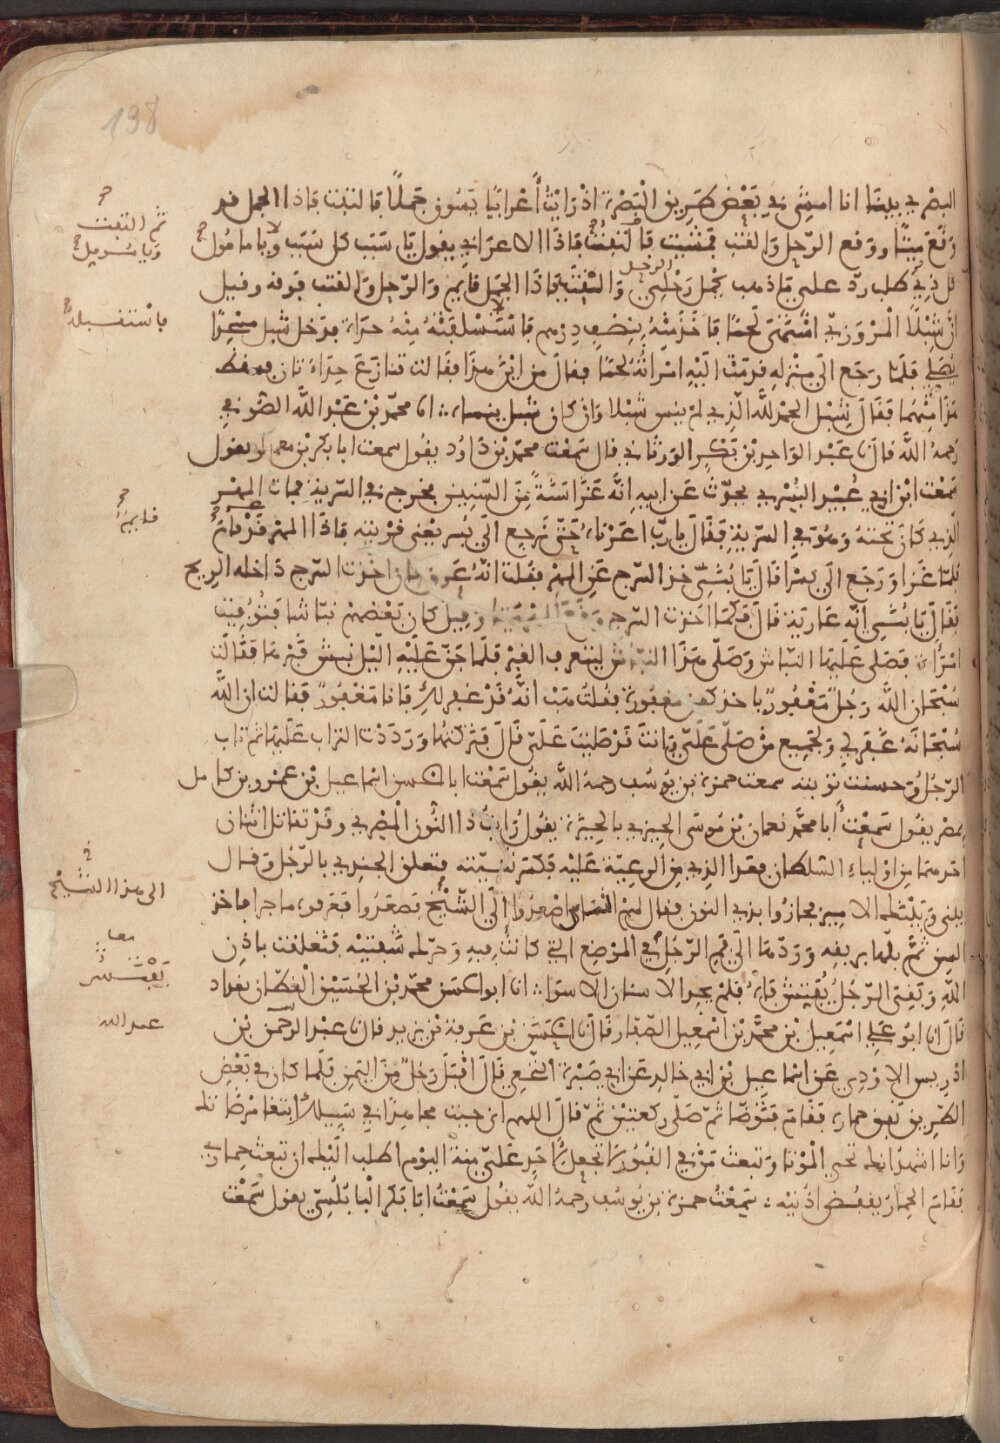 138
البصري بينا انا امشي في بعض طريق البصرة اذ رايت أعرابيا يسوق جملا فالتفت فاذا الجمل قد
وقع ميتا ووقع الرحل والقتب فمشيت فالتفت فاذا الاعرابي يقول يا مسبب كل سبب ويا مامول
كل ذي طلب رد علي ما ذهب يحمل رحلي والقتب فاذا الجمل قايم والرحل والقتب فوقه وقيل
ان شبلا المروزي اشتهى لحما فاخذه بنصف درهم فاستلبته منه حداة فدخل شبل مسجدا
يصلي فلما رجع الى منزله قدمت اليه امراته لحما فقال من اين هذا فقالت تنازع حداتان فسقط
هذا منهما فقال شبل الحمد لله الذي لم ينس شبلا وان كان شبل ينساه انا محمد بن عبد الله الصوفي
رحمه الله قال نا عبد الواحد بن بكر الورثاني قال سمعت محمد بن داود يقول سمعت ابا بكر بن معمر يقول
سمعت ابن ابي عبيد البسري يحدث عن ابيه انه غزا سنة من السنين فخرج في السرية فمات المهر
الذي كان تحته وهو في السرية فقال يا رب اعرناه حتى نرجع الى بسر يعني قريته فاذا المهر قايم
فلما غزا ورجع الى بسر قال يا بني خذ السرج عن المهر فقلت انه عرق فان اخذت السرج داخله الريح
فقال يا بني انه عارية قال فلما اخذت السرج وقع المهر ميتا وقيل كان بعضهم نباشا فتوفيت
امراة فصلى عليها الناس وصلى هذا النباش ليتعرف القبر فلما جن عليه الليل نبش قبرها فقالت
سبحان الله رجل مغفور ياخذ كفن مغفورة فقلت هب انه قد غفر لك فانا مغفور فقالت ان الله
سبحانه غفر لي ولجميع من صلى علي وانت قد صليت علي قال فتركتها ورددت التراب عليها ثم تاب
الرجل وحسنت توبته سمعت حمزة بن يوسف رحمه الله يقول سمعت ابا الحسن اسماعيل بن عمرو بن كامل
بمصر يقول سمعت أبا محمد نعمان بن موسى الحيزي بالحيزة يقول رايت ذا النون المصري وقد تقاتل اثنان
احدهما من اولياء السلطان فعدا الذي من الرعية عليه فكسر ثنيته فتعلق الجندي بالرجل وقال
بيني وبينك الامير فجازوا بذي النون فقال لهم الناس اصعدوا الى الشيخ فصعدوا فعرفوه ما جرا فاخذ
السن ثم بلها بريقه وردها الى فم الرجل في الموضع الذي كانت فيه وحرك شفتيه فتعلقت باذن
الله وبقي الرجل يفتش فاه فلم يجد الاسنان الا سوا انا ابو الحسن محمد بن الحسين القطان ببغداد
قال انا ابو علي اسمعيل بن محمد بن اسمعيل الصفار قال نا الحسن بن عرفة بن يزيد قال نا عبد الرحمن بن
ادريس الاودي عن اسماعيل بن ابي خالد عن ابي سبرة النخعي قال اقبل رجل من اليمن فلما كان في بعض
الطريق نفق حماره فقام فتوضا ثم صلى ركعتين ثم قال اللهم اني جيت مجاهدا في سبيلك ابتغا مرضاتك
وانا اشهد انك تحي الموتا وتبعث من في القبور لا تجعل لأحد علي منة اليوم اطلب اليك ان تبعث حماري
فقام الحمار ينفض اذنيه سمعت حمزة بن يوسف رحمه الله يقول سمعت ابا بكر النابلسي يقول سمعت
ثم التفت
ويا مسؤول
فاستقبله
قايم
الى هذا الشيخ
فمها
يفتش
عبد الله